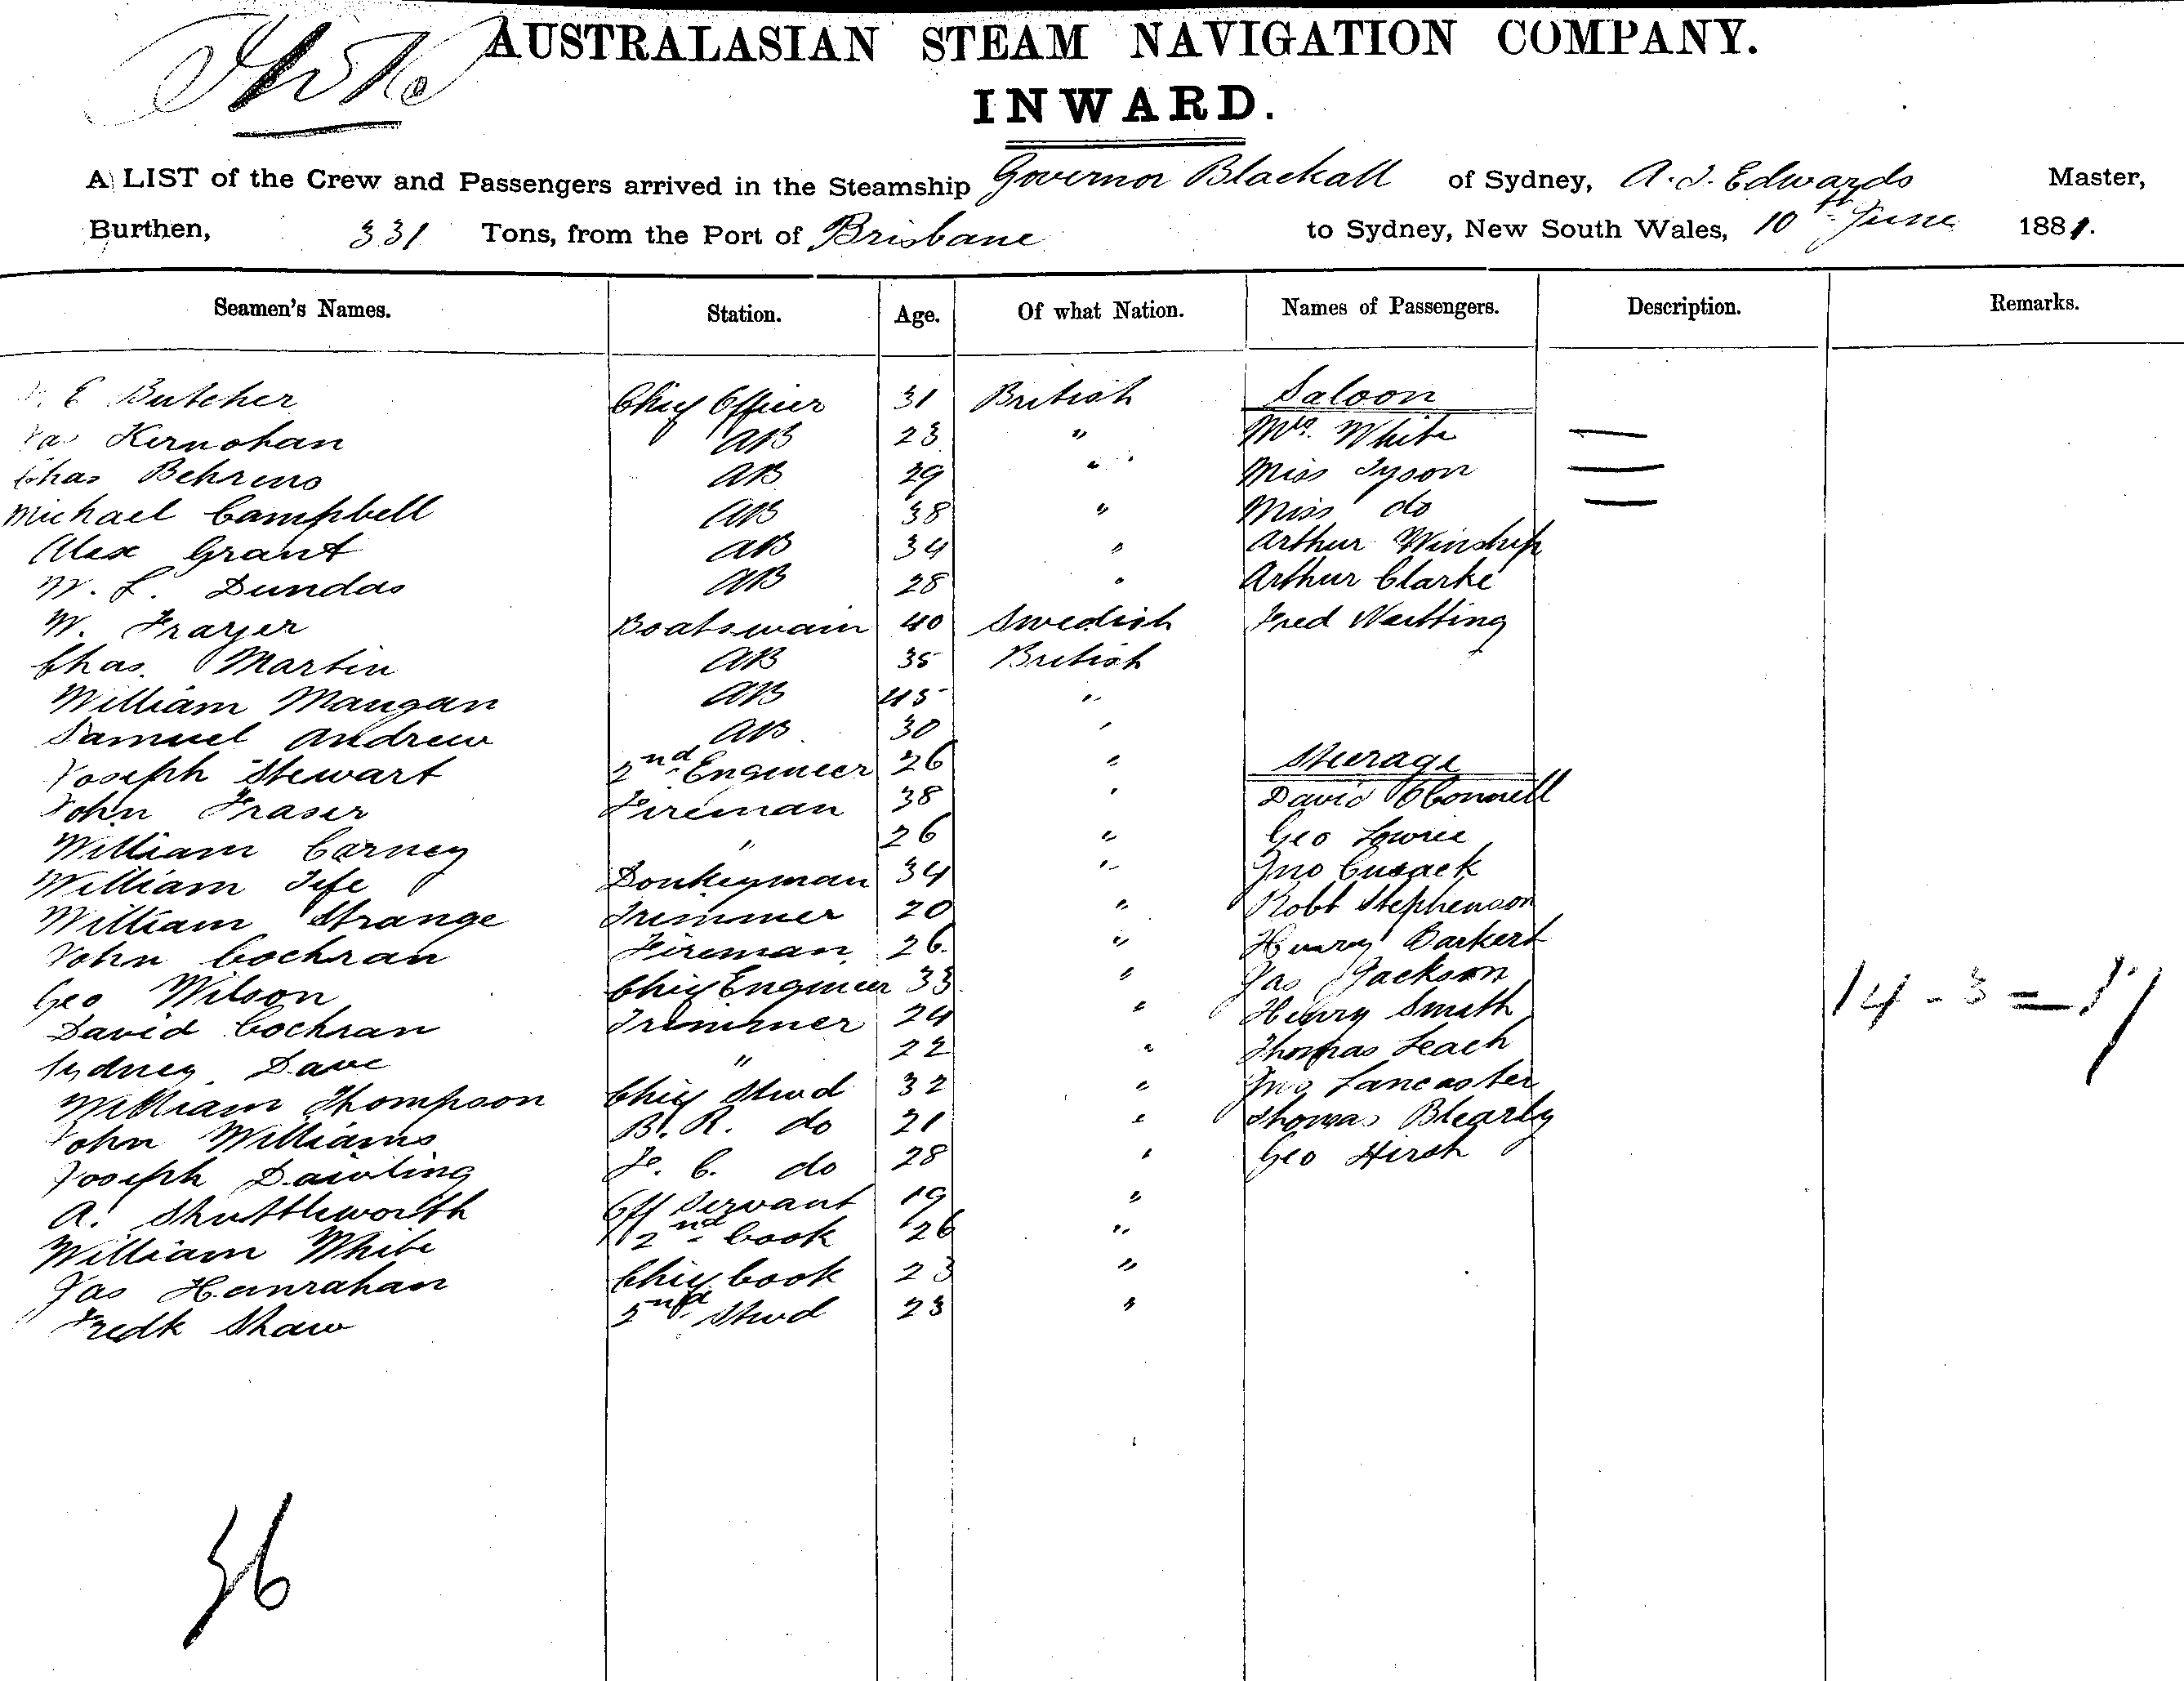 AUSTRALASIAN STEAM NAVIGATION COMPANY.
INWARD.
A LIST of the Crew and Passengers arrived in the Steamship Governor Blackall of Sydney, A. J. Edwards Master,
Burthen, 331 Tons, from the Port of Brisbane to Sydney, New South Wales, 10th June 1881.
Seamen's Names. Station. Age. Of what Nation. Names of Passengers. Description. Remarks.
E Butcher Chief Officer 31 British Saloon
Jas Kernohan AB 23 " Mrs. White —
Chas Behrens AB 29 " Miss Tyson —
Michael Campbell AB 38 " Miss do —
Alex Grant AB 34 " Arthur Winship
W. L. Dundas AB 28 " Arthur Clarke
W. Frazer Boatswain 40 Swedish Fred
Chas. Martin AB 35 British
William Mangan AB 45 "
Samuel Andrew AB 30 "
Joseph Stewart 2nd Engineer 26 " Steerage
John Fraser Fireman 38 " David OConnell
William Carney " 26 " Geo Lowrie
William Fife Donkeyman 34 " Jno Cusack
William Strange Trimmer 20 " Robt Stephenson
John Cochran Fireman 26. " Henry Barkert
Geo Wilson Chief Engineer 33 " Jas Jackson
David Cochran Trimmer 24 " Henry Smith
Sydney Dave " 22 " Thomas Leach
William Thompson Chief Stwd 32 " Jno Lancaster
John Williams B. R. do 21 " Thomas Blearly
Joseph Dawling F. C. do 28 " Geo Hirsh
A. Shuttleworth Off Servant 19 "
William White 2nd Cook 26 "
Jas Hanrahan Chief Cook 23 "
Fredk Shaw 2nd Stwd 23 "
14 - 3 = 17
36